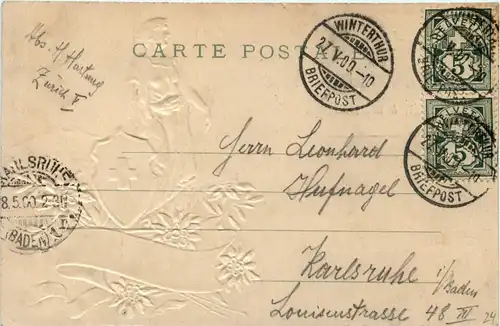 Abs. H. Hartung
Zürich V
CARTE POST
WINTERTHUR
27.V.00.-10
BRIEFPOST
HELVETIA
5
HELVETIA
5
WINTERTHUR
BRIEFPOST
BRIEFPOST
KARLSRUHE
8.5.00.2-3
(BADEN)
Herrn Leonhard
Hufnagel
Karlsruhe i/Baden
Louisenstrasse 48 III
24